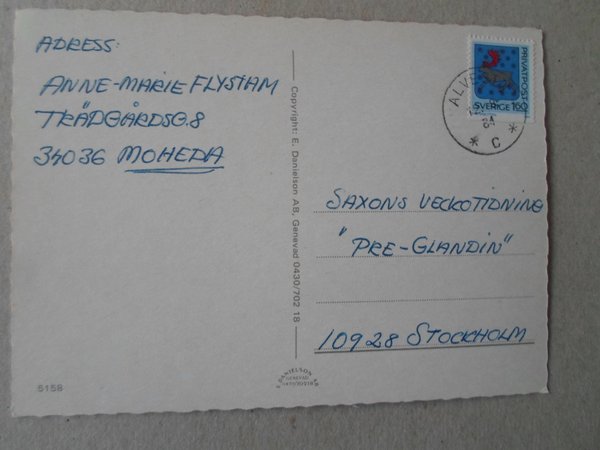 ADRESS:
ANNE-MARIE FLYSTAM
TRÄDGÅRDSG. 8
34036 MOHEDA
Copyright: E. Danielson AB, Genevad 0430/702 18
PRIVATPOST
SVERIGE 160
ALVE
84
* C *
SAXONS VECKOTIDNING
"PRE-GLANDIN"
10928 STOCKHOLM
5158
E. DANIELSON AB
GENEVAD
0430/70218